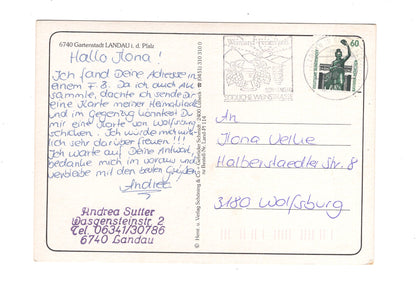 6740 Gartenstadt LANDAU i. d. Pfalz
Hallo Ilona!
Ich fand Deine Adresse in
einem F.B. Da ich auch AK
sammle, dachte ich sende Dir
eine Karte meiner Heimatstadt
und im Gegenzug könntest Du
mir eine Karte von Wolfsburg
schicken. Ich würde mich wirk-
lich sehr darüber freuen!!!
Ich warte auf Deine Antwort,
bedanke mich im voraus und
verbleibe mit den besten Grüßen
Andrea
Andrea Sutter
Wasgensteinstr. 2
Tel. 06341/30786
6740 Landau
© Herst. u. Verlag Schöning & Co + Gebrüder Schmidt · 2400 Lübeck
SÜDLICHE WEINSTRASSE
60
An
Ilona
Halberstaedter Str. 8
3180 Wolfsburg